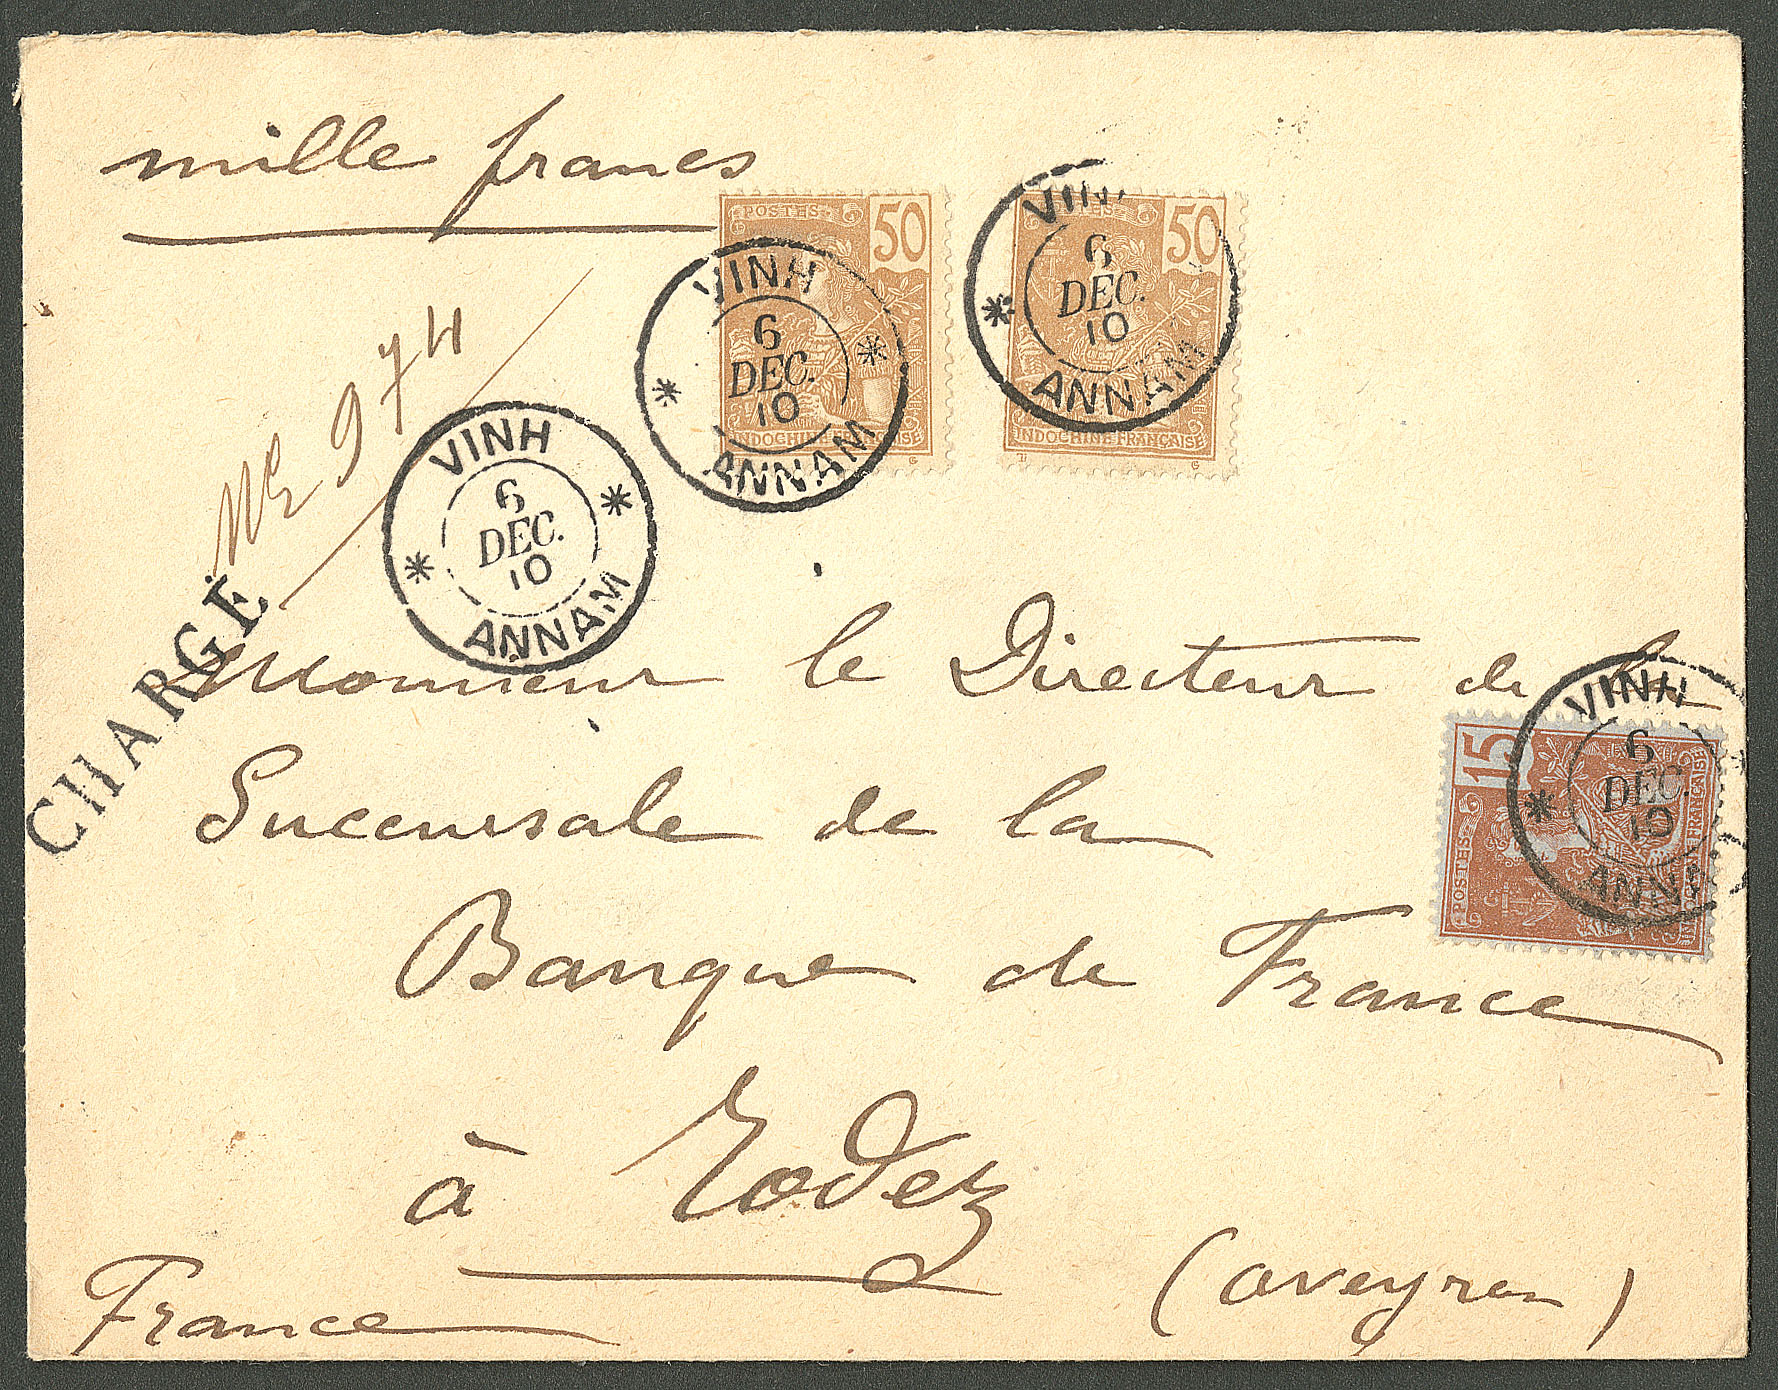 mille francs
POSTES 50
INDOCHINE FRANÇAISE
VINH
6
DÉC.
10
ANNAM
50
INDOCHINE FRANÇAISE
VINH
6
DÉC.
10
ANNAM
974
VINH
6
DÉC.
10
ANNAM
CHARGÉ
Monsieur le Directeur de la
Succursale de la
Banque de France
à Rodez
(Aveyron)
France
15
POSTES
FRANÇAISE
VINH
6
DÉC.
10